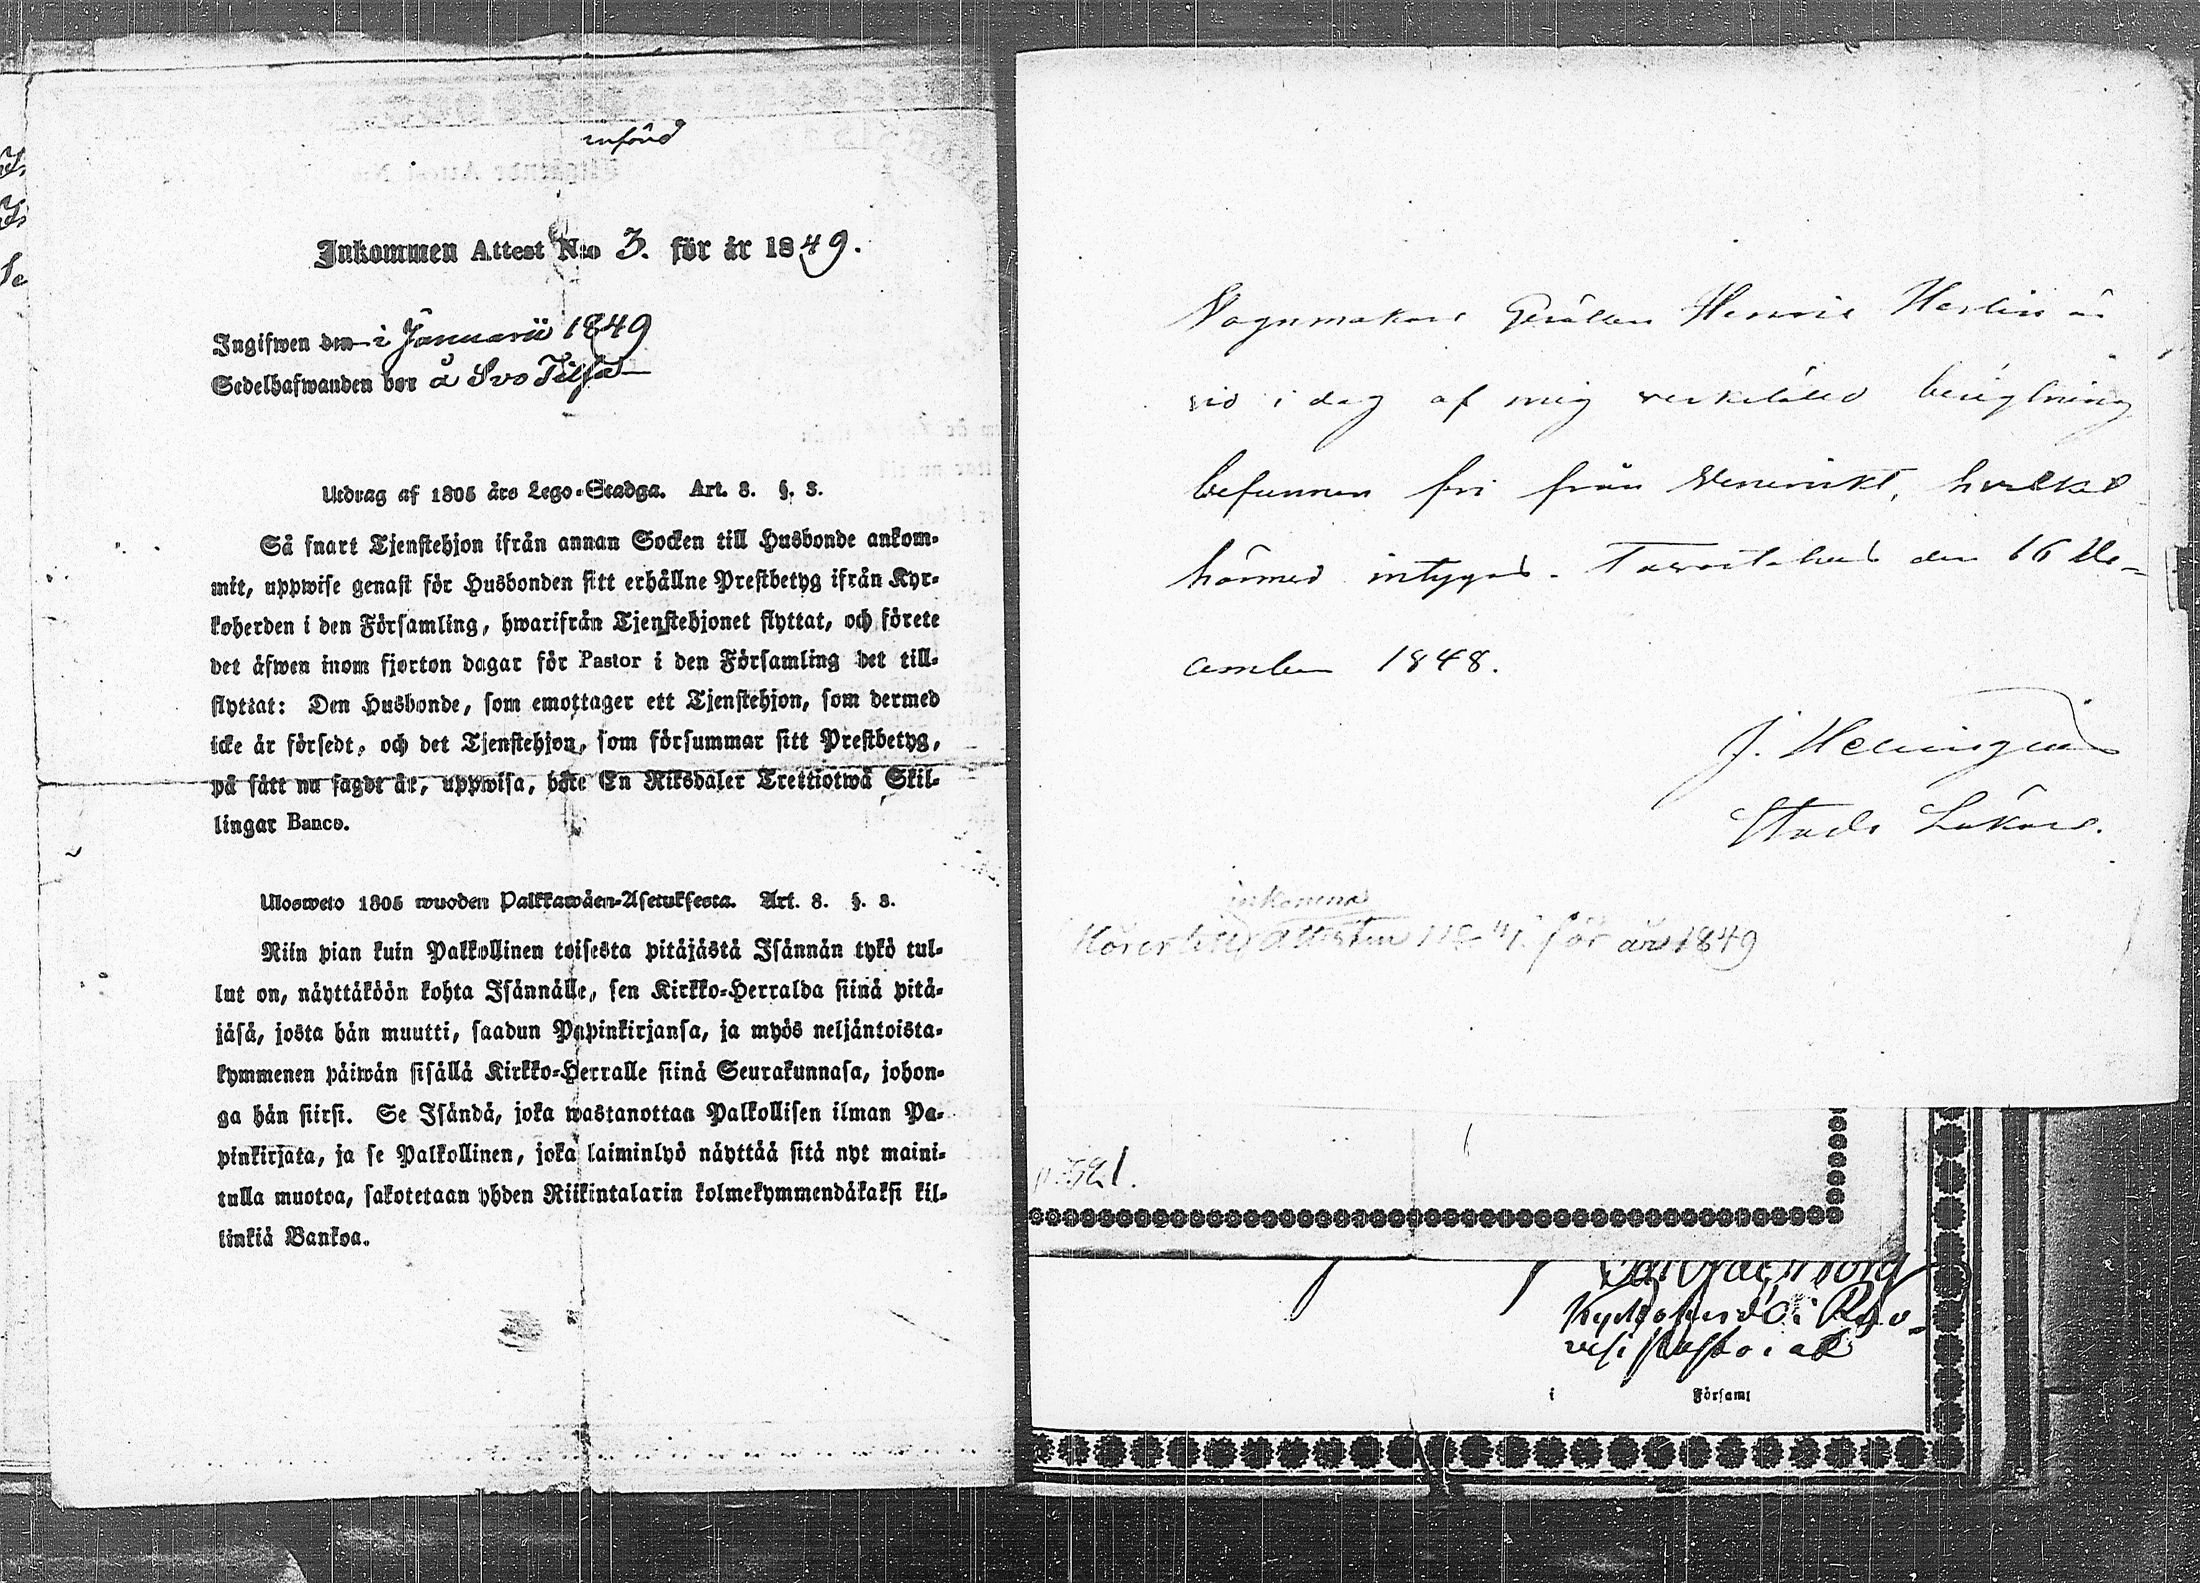 införd
Inkommen Attest N:o 3. för år 1849.
Ingifwen den i Januarii 1849
Sedelhafwanden bor å
Utdrag af 1805 års Lego-Stadga. Art. 8. §. 3.
Så snart Tjenstehjon ifrån annan Socken till Husbonde ankom-
mit, uppwise genast för Husbonden sitt erhållne Prestbetyg ifrån Kyr-
koherden i den Församling, hwarifrån Tjenstehjonet flyttat, och förete
det äfwen inom fjorton dagar för Pastor i den Församling det till-
flyttat: Den Husbonde, som emottager ett Tjenstehjon, som dermed
icke är försedt, och det Tjenstehjon, som försummar sitt Prestbetyg,
på sätt nu sagdt är, uppwisa, böte En Riksdaler Trettiotwå Skil-
lingar Banco.
Ulosweto 1805 wuoden Palkkawäen-Asetuksesta. Art. 8. §. 3.
Niin pian kuin Palkollinen toisesta pitäjästä Isännän tykö tul-
lut on, näyttäköön kohta Isännälle, sen Kirkko-Herralda siinä pitä-
jäsä, josta hän muutti, saadun Papinkirjansa, ja myös neljäntoista-
kymmenen päiwän sisällä Kirkko-Herralle siinä Seurakunnasa, johon-
ga hän siirsi. Se Isändä, joka wastanottaa Palkollisen ilman Pa-
pinkirjata, ja se Palkollinen, joka laiminlyö näyttää sitä nyt maini-
tulla muotoa, sakotetaan yhden Riikintalarin kolmekymmendäkaksi kil-
linkiä Bankoa.
Vagnmakare Gesällen Henric Herlin är
vid i dag af mig verkstäld besigtning
befunnen fri från Veneriskt, hvilket
härmed intygas. Tavastehus den 16 De-
cember 1848.
J.
Stads Läkare.
inkomna
Hörer till attesten N:o 4. för år 1849
p. 521.
Kyrkoherde i
i Församl